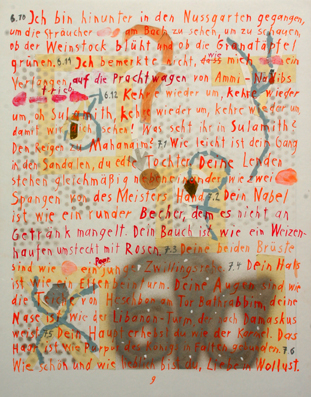 6.10 Ich bin hinunter in den Nussgarten gegangen,
um die Sträucher am Bach zu sehen, um zu schauen,
ob der Weinstock blüht und ob die Granatäpfel
grünen. 6.11 Ich bemerkte nicht, wie mich ein
Verlangen auf die Prachtwagen von Ammi-Nadibs
trieb 6.12 Kehre wieder, kehre wieder
um, oh Sulamith, kehre wieder um, kehre wieder um,
damit wir dich sehen! Was seht ihr in Sulamith?
Den Reigen zu Mahanaim. 7.1 Wie leicht ist dein Gang
in den Sandalen, du edle Tochter. Deine Lenden
stehen gleichmäßig nebeneinander wie zwei
Spangen von des Meisters Hand. 7.2 Dein Nabel
ist wie ein runder Becher, dem es nicht an
Getränk mangelt. Dein Bauch ist wie ein Weizen-
haufen umsteckt mit Rosen. 7.3 Deine beiden Brüste
sind wie ein Paar junger Zwillingsrehe. 7.4 Dein Hals
ist wie ein Elfenbeinturm. Deine Augen sind wie
die Teiche von Heschbon am Tor Bathrabbim, deine
Nase ist wie der Libanon-Turm der nach Damaskus
weist. 7.5 Dein Haupt erhebst du wie der Karmel. Das
Haar ist wie Purpur des Königs in Falten gebunden. 7.6
Wie schön und wie lieblich bist du, Liebe in Wollust.
9